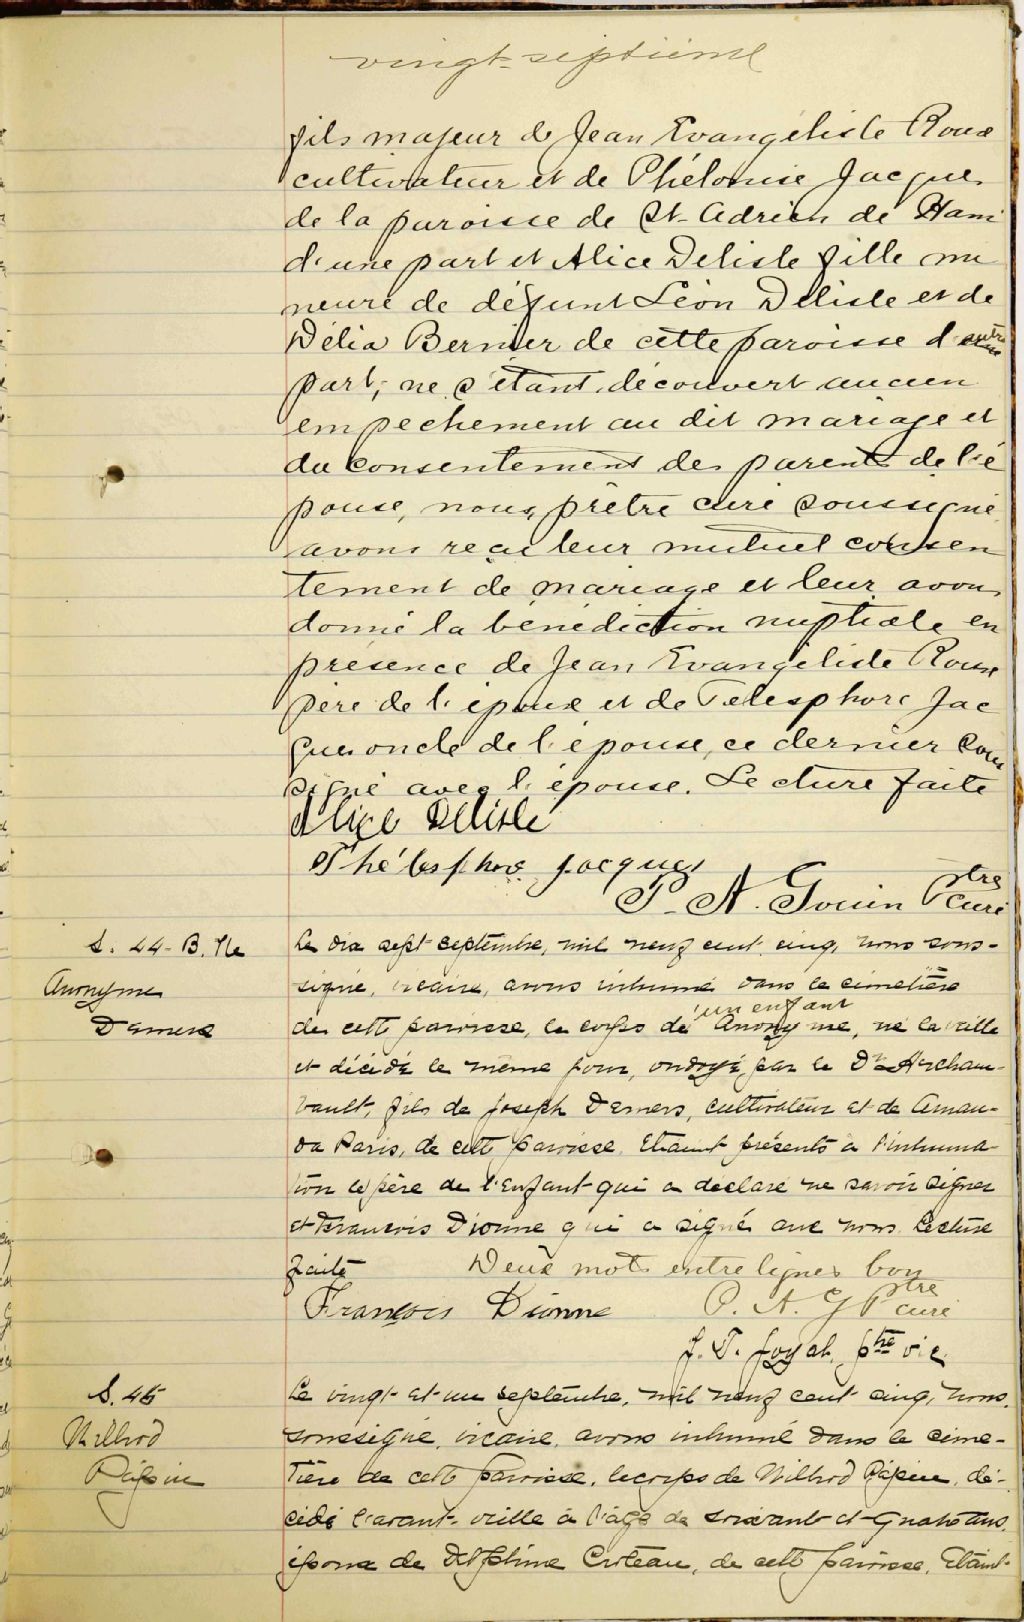 vingt-septième
fils majeur de Jean Evangéliste Roux
cultivateur et de Phélonise Jacques
de la paroisse de St-Adrien de Ham
d'une part et Alice Delisle fille mi
neure de défunt Léon Delisle et de
Délia Bernier de cette paroisse d'autre
part; ne s'étant découvert aucun
empechement au dit mariage et
du consentement des parents de l'é
pouse, nous, prêtre curé soussigné
avons reçu leur mutuel consen
tement de mariage et leur avons
donné la bénédiction nuptiale en
présence de Jean Evangéliste Roux
père de l'époux et de Télesphore Jac
ques oncle de l'épouse, ce dernier sous
signé avec l'épouse. Lecture faite
Alice Delisle
Thélesphore Jacques
P. A. Gouin Ptre curé
S. 44- B. 
Anonyme
Demers
Le dix sept septembre, mil neuf cent cinq, nous sous-
signé, vicaire, avons inhumé dans le cimetière
de cette paroisse, le corps de un enfant Anonyme, né la veille
et décédé le même jour, ondoyé par le Dr Archam-
bault, fils de Joseph Demers, cultivateur et de Aman-
da Paris, de cette paroisse. Etaient présents à l'inhuma-
tion le père de l'enfant qui a déclaré ne savoir signer
et François Dionne qui a signé avec nous. Lecture
faite Deux mots entre lignes bon
François Dionne P. A. G Ptre curé
J. T. Joyal, ptre vic.
S. 45
Wilbrod
Pépin
Le vingt et un septembre, mil neuf cent cinq, nous,
soussigné, vicaire, avons inhumé dans le cime-
tière de cette paroisse, le corps de Wilbrod Pépin, dé-
cédé l'avant-veille à l'âge de soixante et quatre ans,
époux de Delphine Croteau, de cette paroisse. Etaient